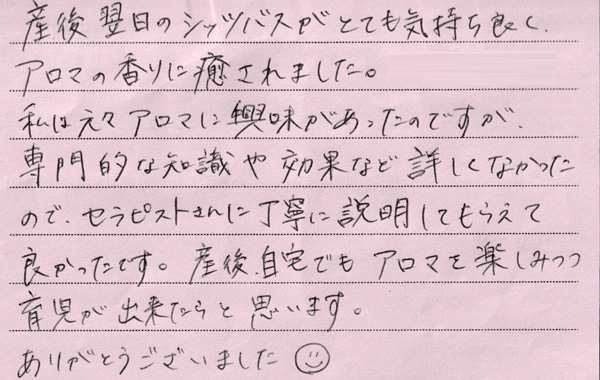 産後翌日のシッツバスがとても気持ち良く、
アロマの香りに癒されました。
私は元々アロマに興味があったのですが、
専門的な知識や効果など詳しくなかった
ので、セラピストさんに丁寧に説明してもらえて
良かったです。産後、自宅でもアロマを楽しみつつ
育児が出来たらと思います。
ありがとうございました